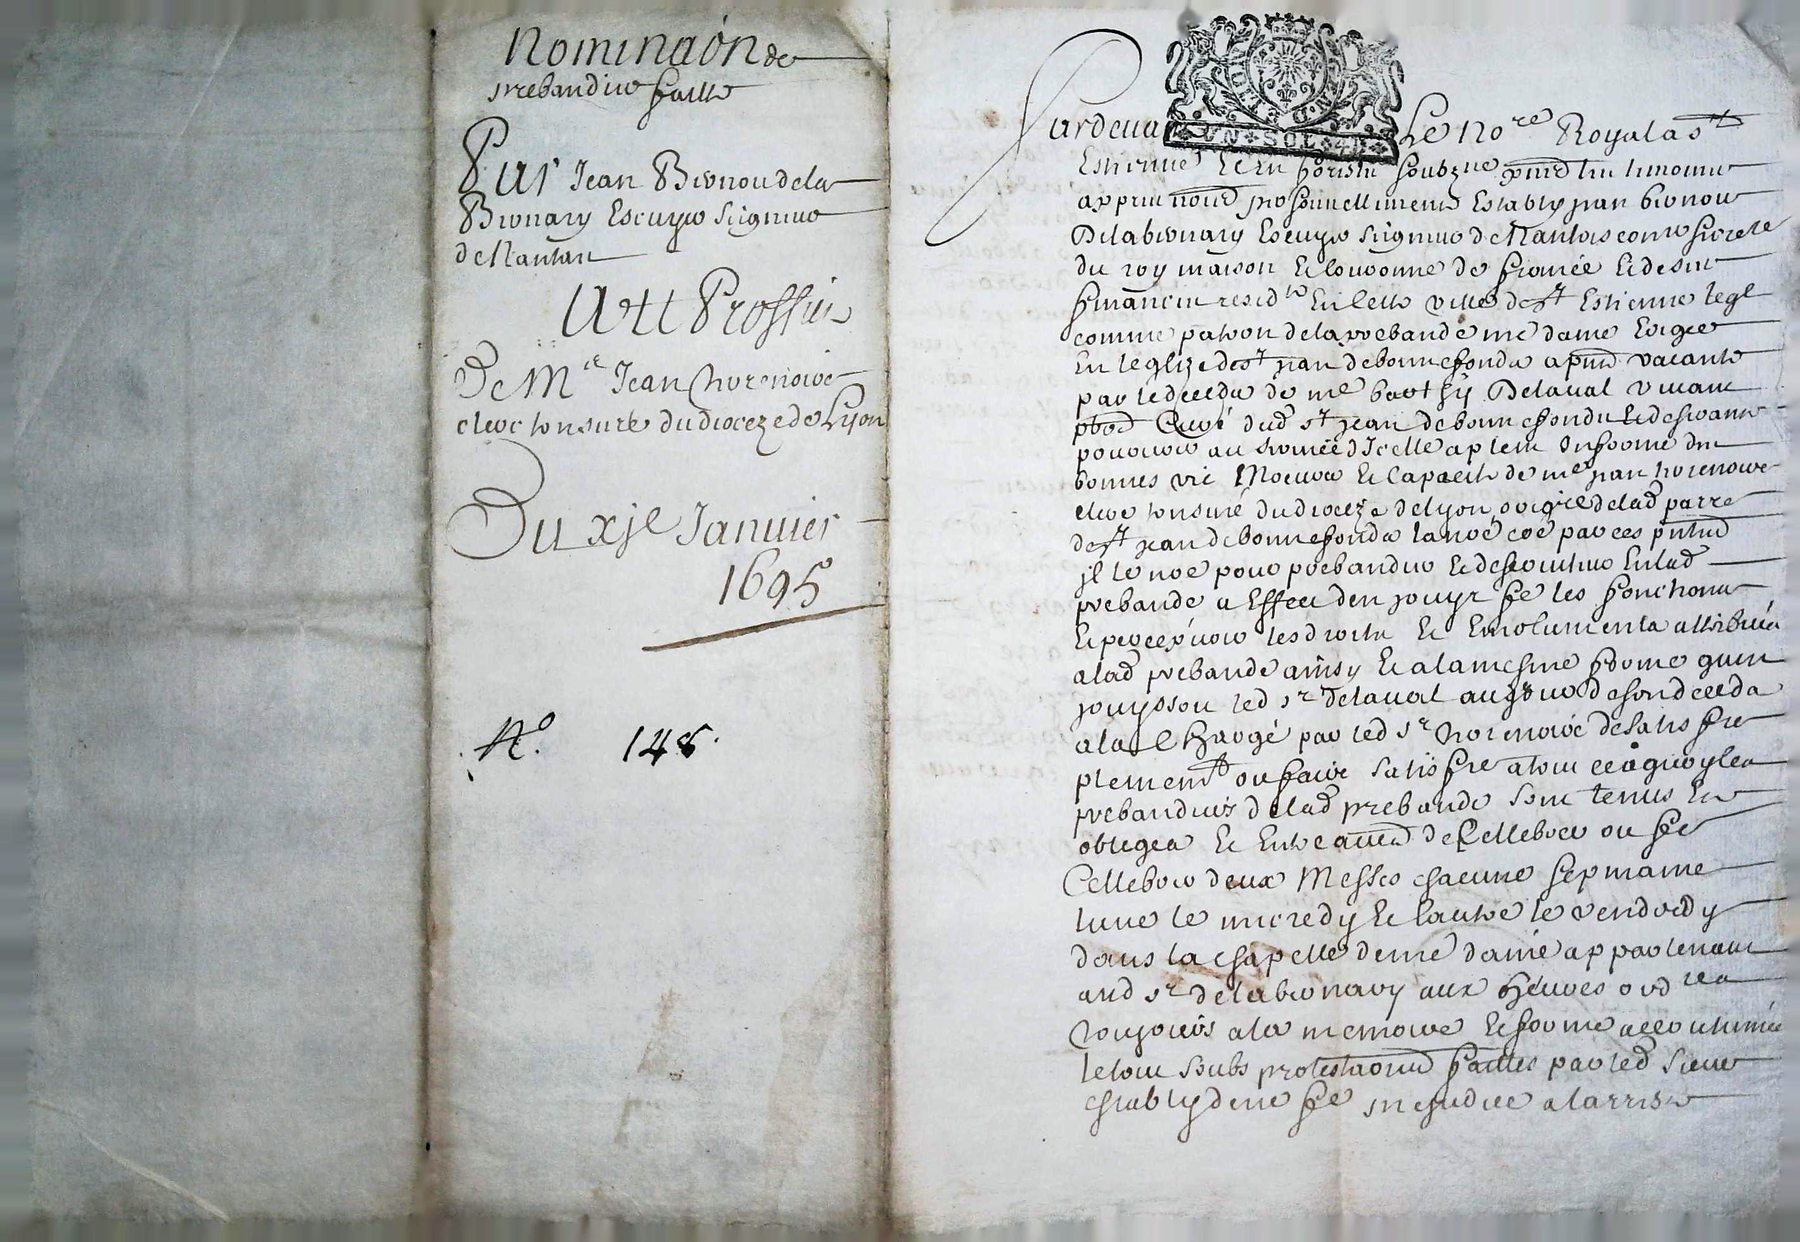 Nominaon de
prebandier faitte
Par Jean Bernou de la
Bernary Escuyer seigneur
de Nantas
Au Proffit
De Me Jean thorenoire
clerc tonsuré du dioceze de Lyon
Du xje Janvier
1695
No. 148.
VN SOL 4D
Pardevant Le nore Royal a St
Estienne Et en forestz soubzne
personnellement Estably jean bernou
De la bernary Escuyer seigneur de Nantas conser secrere
du roy maison Et couronne de france Et de ses
finances residt En cette ville de st Estienne leql
comme patron de la prebande nre dame Erigée
En leglize de st jean de bonnefondz a pnt vacante
par le decedz de me Delaval vivant
pbre Curé dud st jean de bonnefondz Et desirant
pourvoir au service d'Icelle a plein Informé des
bonnes vie Moeurs Et Capacité de me jean thorenoire
clerc tonsuré du dioceze de lyon origre de lad parre
de st jean de bonnefondz la noé coe par ces pntes
jl le noe pour prebandier Et deserviteur En lad
prebande a Effect den jouyr fre les fonctions
Et percepvoir les droits Et Emoluments attribués
a lad prebande ainsy Et a la mesme forme quen
jouyssoit led sr delaval au jour de son decedz
a la Charge par led sr thorenoire de satisfre
plement ou faire satisfre a tout ce a quoy les
prebandiers de lad prebande sont tenus Et
obligez Et Entre autres de Cellebrer ou fre
Cellebrer deux Messes chacune sepmaine
lune le mercredy Et lautre le vendredy
dans la chapelle de nre dame appartenant
aud sr de la bernary aux heures ordres
toujours a la maniere Et forme accoutumée
le tout soubs protestations faittes par led sieur
Estably de ne fre prejudice a